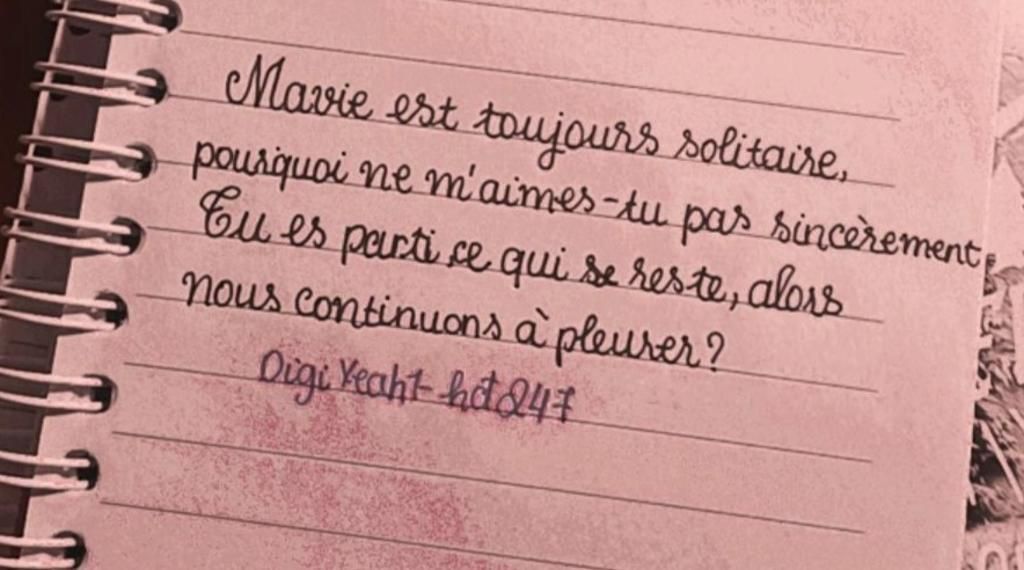 Mavie est toujours solitaire,
pourquoi ne m'aimes-tu pas sincèrement,
Tu es parti, ce qui se reste, alors
nous continuons à pleurer?
Digi Yeaht-hdt247